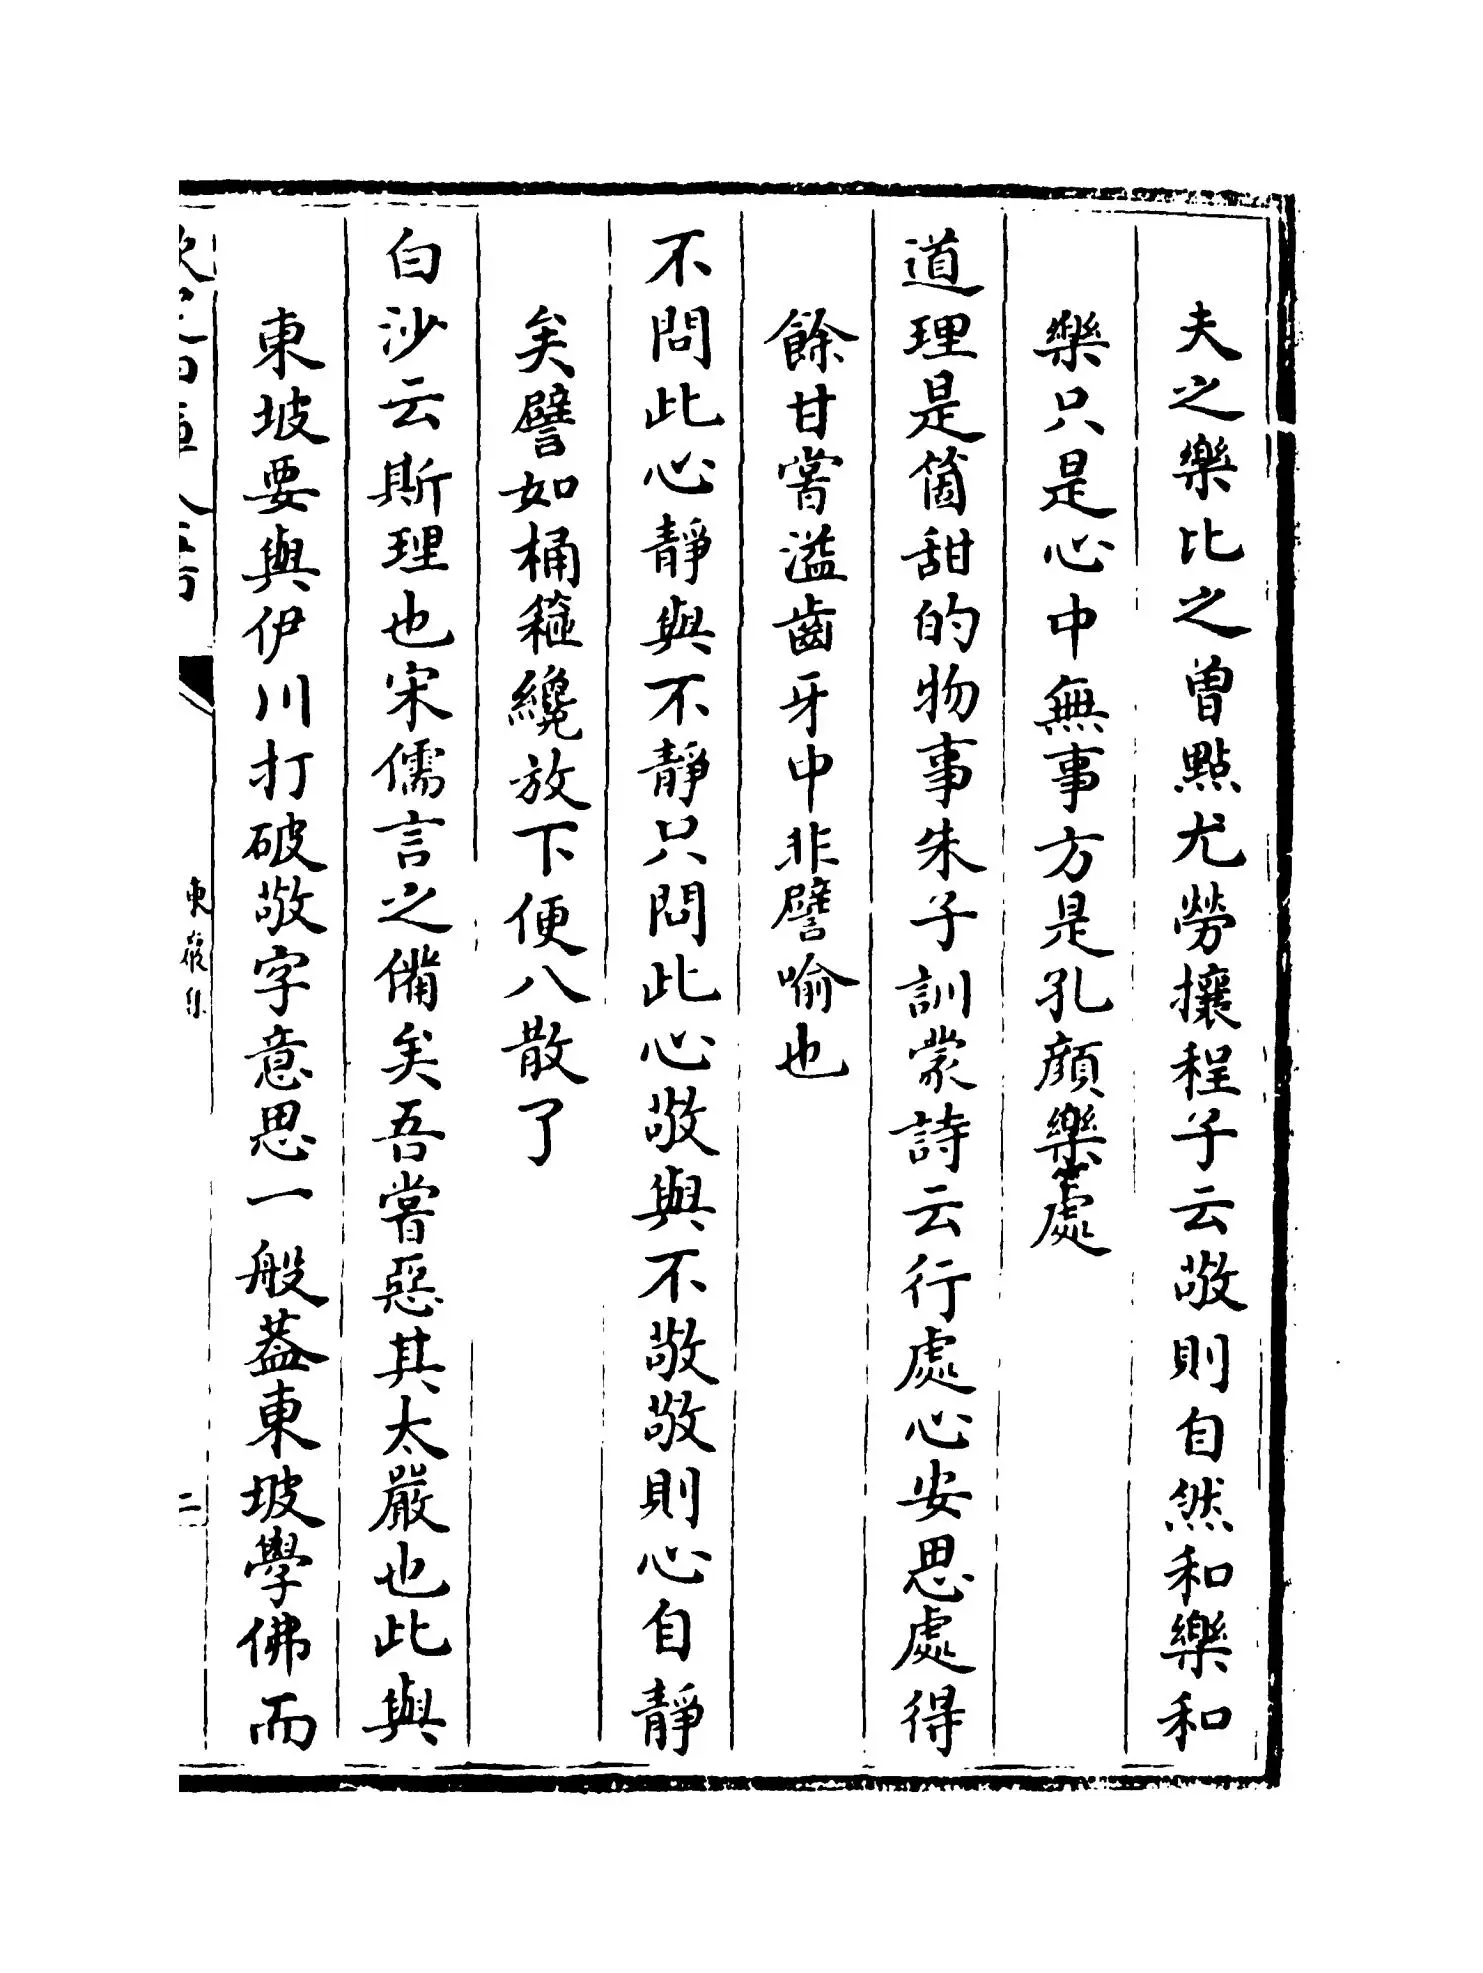 夫之樂比之曾點尤勞攘程子云敬則自然和樂和
樂只是心中無事方是孔顔樂處
道理是箇甜的物事朱子訓蒙詩云行處心安思處得
餘甘嘗溢齒牙中非譬喻也
不問此心靜與不靜只問此心敬與不敬敬則心自靜
矣譬如桶箍纔放下便八散了
白沙云斯理也宋儒言之備矣吾嘗惡其太嚴也此與
東坡要與伊川打破敬字意思一般葢東坡學佛而
東巖集
二